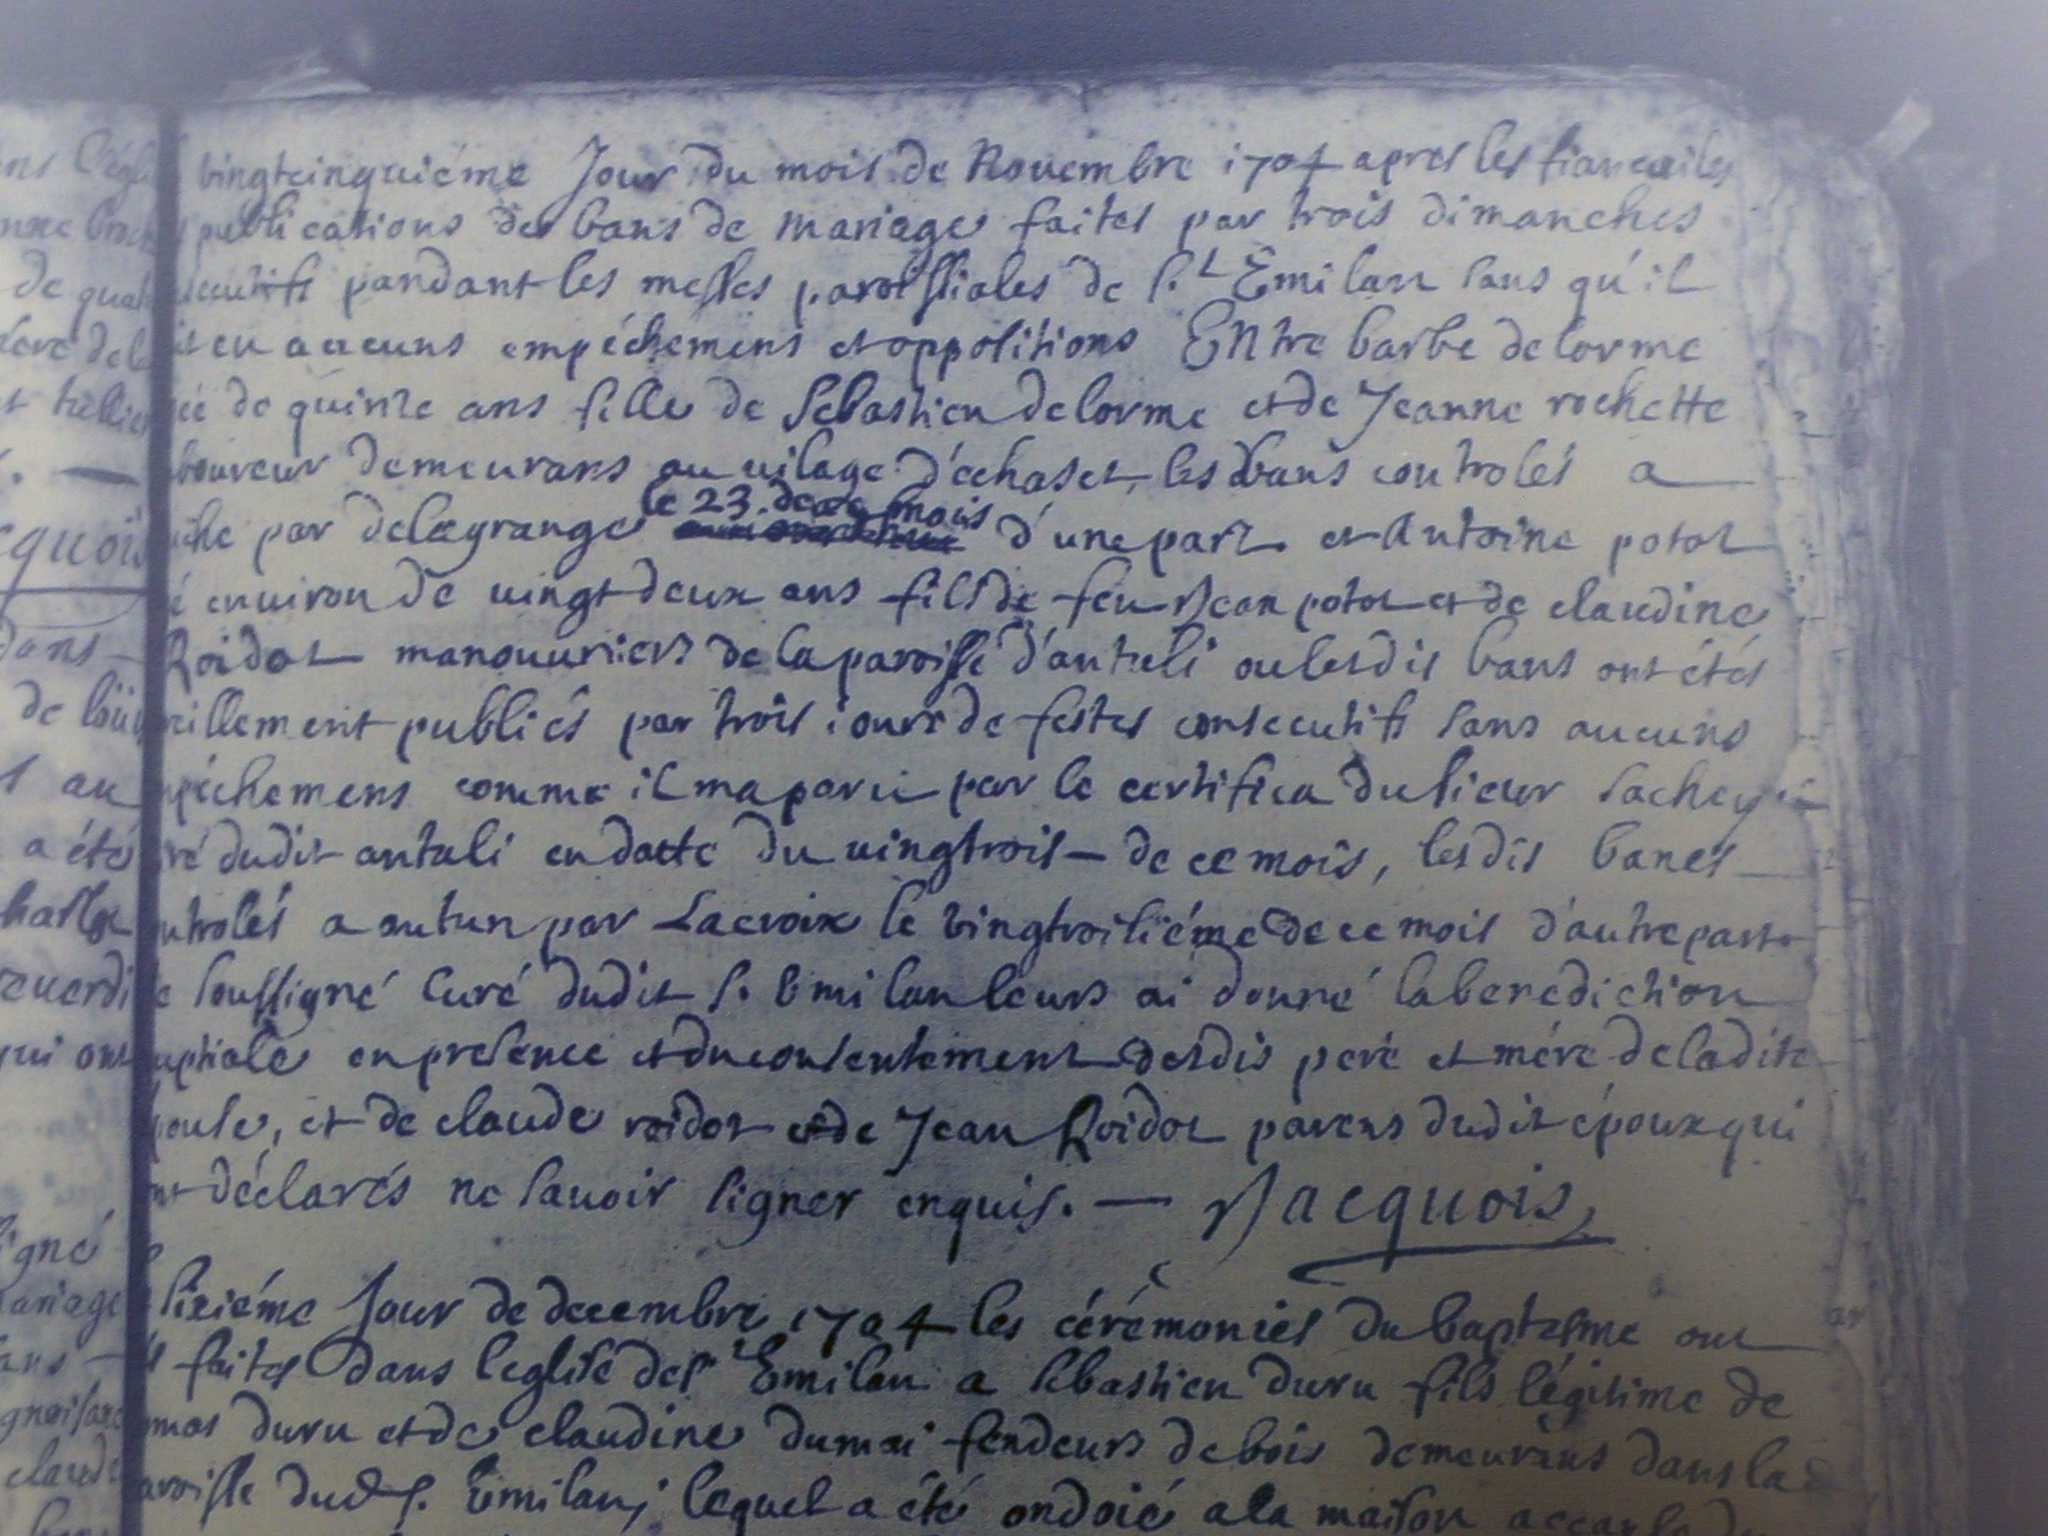 vingtcinquiéme Jour du mois de Novembre 1704 apres les fiancailles
publications des bans de mariage faites par trois dimanches
secutifs pandant les messes paroissiales de S.t Emilan sans qu'il
it eu aucuns empéchemens et oppositions Entre barbe delorme
gée de quinze ans fille de Sebastien delorme et de Jeanne rochette
boureur demeurans au vilage d'échaset, les bans controlés a
uche par delagrange le 23. de ce mois d'une part et Antoine potot
é environ de vingt deux ans fils de feu Jean potot et de claudine
Roidot manouvriers de la paroisse d'antuli ou lesdis bans ont étés
reillement publiés par trois iours de festes consecutifs sans aucuns
péchemens comme il ma paru par le certifica du sieur
ré dudit antuli en datte du vingtrois - de ce mois, lesdis bancs
ntrolés a autun par Lacroix le vingtroisiéme de ce mois d'autre part
e soussigné Curé dudit S. Emilan leurs ai donné la benediction
uptiale en presence et du consentement desdis pere et mére de ladite
pouse, et de claude roidot et de Jean Roidot parens dudit époux qui
nt déclarés ne savoir signer enquis. — Jacquois
sixiéme Jour de decembre 1704 les cérémonies du baptesme ont
faites dans leglise de st Emilan a sebastien duru fils légitime de
mas duru et de claudine dumai fendeurs de bois demeurans dans la
aroisse dud S. Emilan, lequel a été ondoié a la maison a cause du